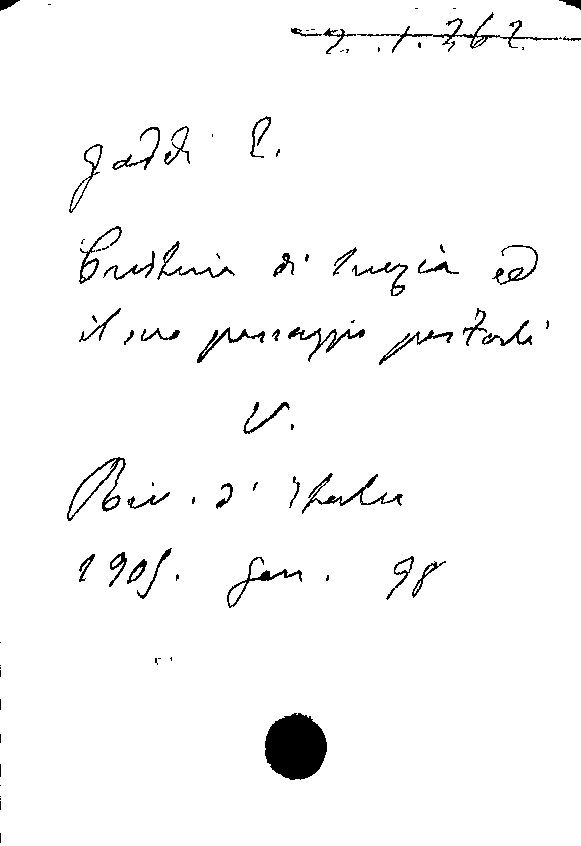 2.1.262
Gaddi L.
Cristina di Svezia ed
il suo passaggio per Forlì
V.
Riv. d'Italia
1905. Gen. 98